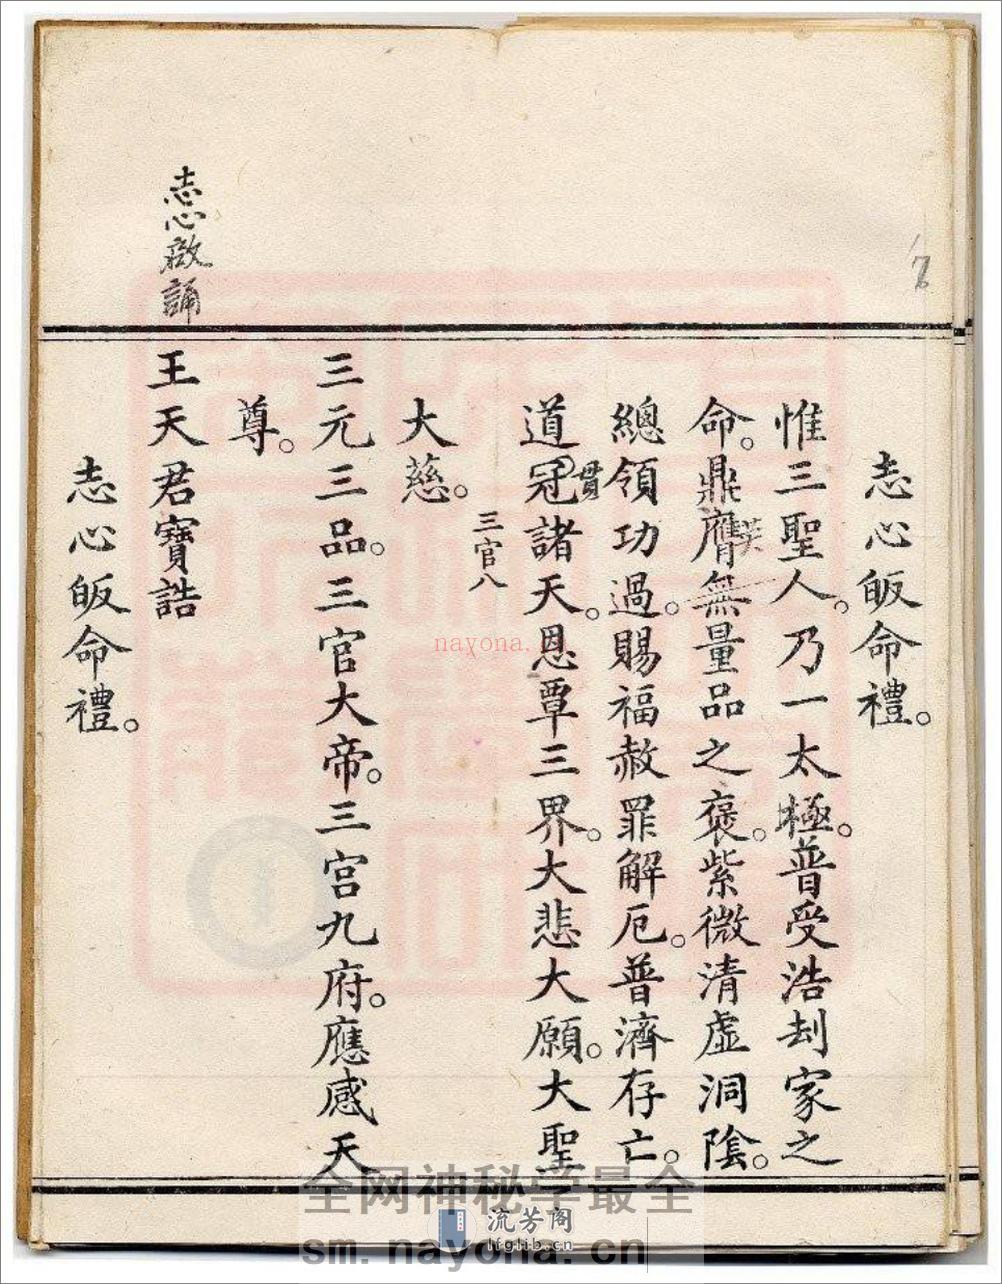 志心皈命禮。
惟三聖人。乃一太極。普受浩刦家之
命。鼎膺無量品之褒。紫微清虛洞陰。
英
總領功過。賜福赦罪解厄。普濟存亡。
道冠諸天。恩覃三界。大悲大願。大聖
貫
三官八
大慈。
三元三品。三官大帝。三宫九府。應感天
尊。
志心啟誦
王天君寶誥
志心皈命禮。
nayona.cn
全网神秘学最全
流芳阁
lfglib.cn
sm.nayona.cn